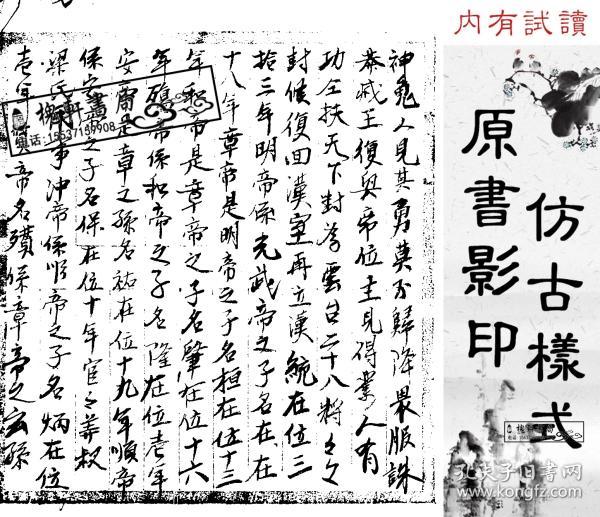 内有試讀
仿古樣式
原書影印
神鬼人見其勇莫不歸降眾服誅
恭滅王復興帝位主見得業人有
功左扶天下封為雲台二十八將々々
封候復回漢室再立漢統在位三
拾三年明帝係光武帝之子名在在
十八年章帝是明帝之子名桓在位十三
年和帝是章帝之子名肇在位十六
年殤帝係和帝之子名隆在位壹年
安帝是章之孫名祐在位十九年順帝
係安之子名保在位十年官之美叔
梁氏事冲帝係順帝之子名炳在位
壹年帝名纘係章帝之玄孫
槐軒書
电话:15637189908
孔夫子旧书网
www.kongfz.com